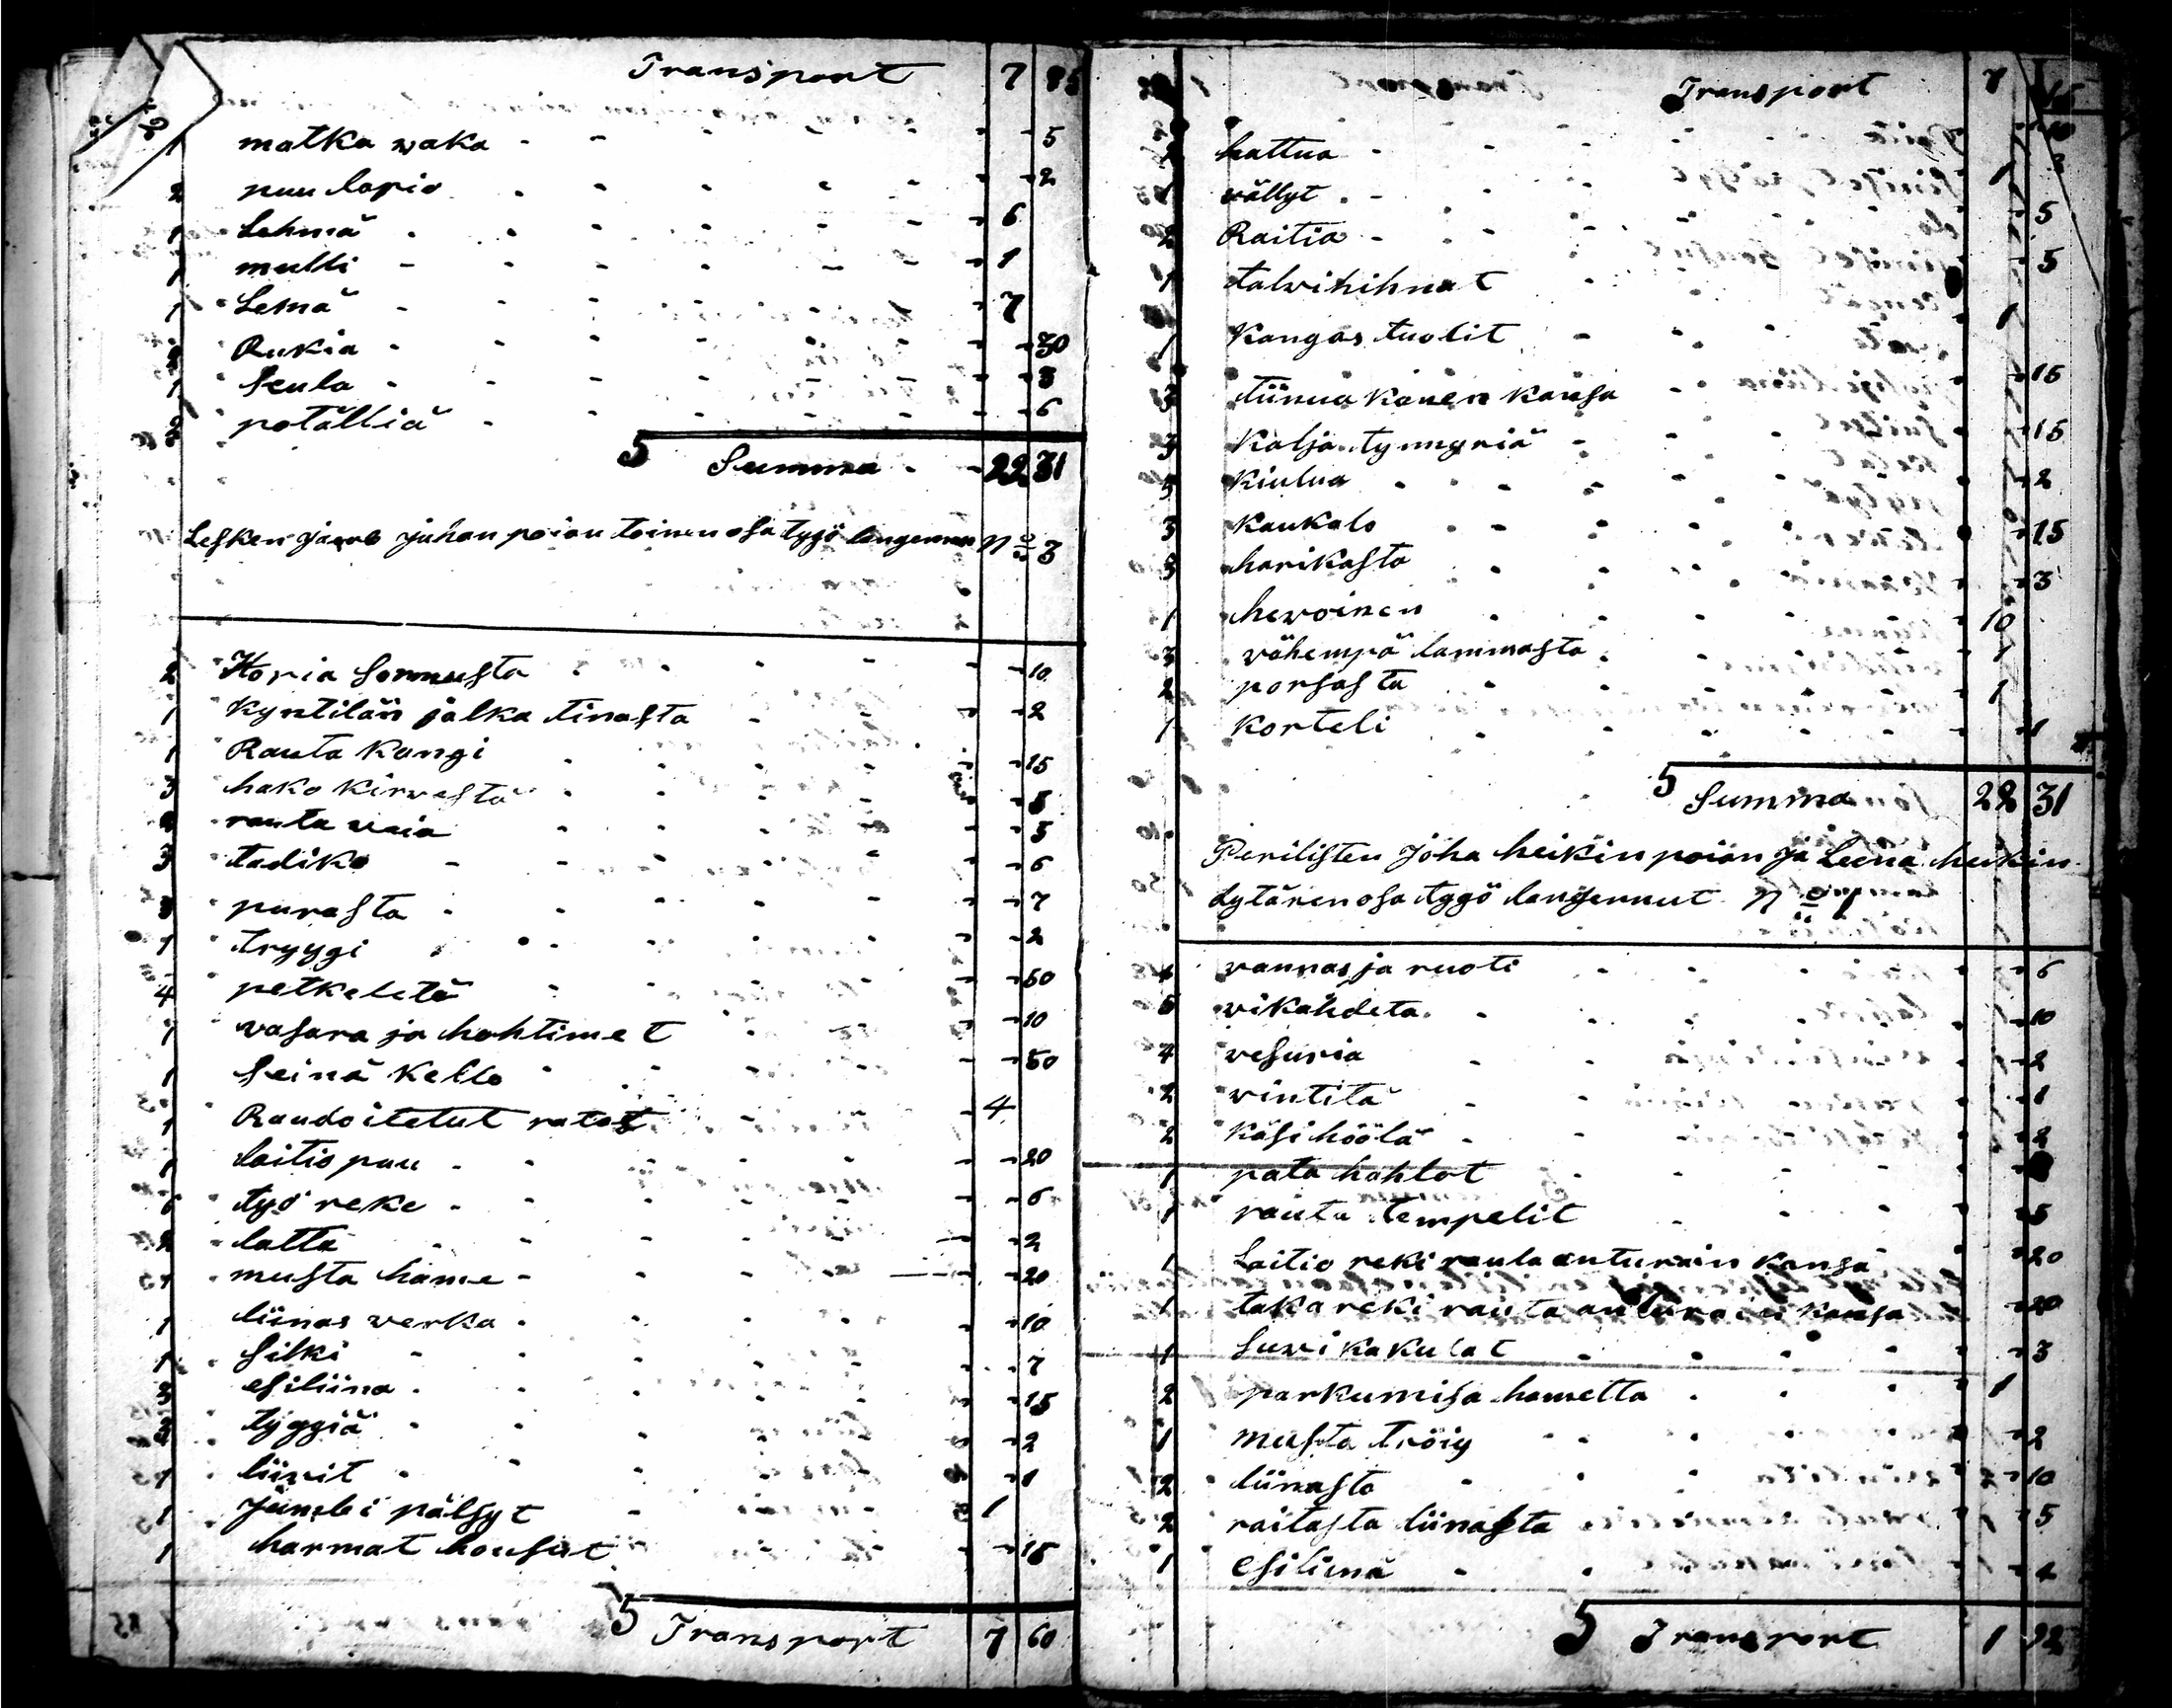 Transport 7 85
1 matka waka - - 5
2 puu lapio - 2
1 Lehmä - 6
1 mulli - 1
1 Lemä - 7
Rukia - 30
1 Seula - 3
2 potällia - 6
5 Summa - 22 31
Lesken Jacob Juhan poian toinen osa tygö langennu No 3
2 Hopia Sormusta - 10
1 Kyntilän jalka tinasta - 2
1 Rauta Kangi - 15
3 hako Kirwestä - 8
rauta waia - 5
3 tadiko - 6
3 purasta - 7
1 tryygi - 2
4 petkeletä - 50
1 wasara ja hohtimet - 10
1 Seinä Kello - 50
1 Raudoitetut ratat - 4
1 laitio puu - 20
6 työ reke - 6
2 latta - 2
1 musta hame - 20
1 liinas werka - 10
1 Silki - 7
3 esiliina - 15
2 tyggiä - 2
1 liivit - 1
1 Jümbi pälsyt - 1
1 harmat housut - 15
5 Transport 7 60
Transport 7
2 hattua -
1 vällyt - 1
2 Raitia - 5
1 talvihihnat - 5
1 Kangas tuolit - 1
3 tiinua Kanen Kansa - 15
3 Kalja tynnyriä - 15
5 Kiulua - 2
3 Kaukalo - 15
3 harikasta - 3
1 hewoinen - 10
3 vähempä lammasta - 1
2 porsasta - 1
1 Korteli - 1
5 Summa 22 31
Perilisten Joha heikin poian ja Leena heikin
tytären osa tygö langennut No
vannas ja ruoti - 6
5 vikahdeta - 10
4 vesuria - 2
2 vintita - 1
2 Käsi höölä - 2
1 pata hahlot
1 rauta tempelit - 5
1 Laitio reki rauta anturain Kansa - 20
1 taka reki rauta anturain Kansa - 20
1 Suvi Kakulat - 3
2 parkumisa hametta - 1
1 musta tröiy - 2
2 liinasta - 10
2 raitasta liinasta - 5
1 esiliina -
5 Transport 1 92